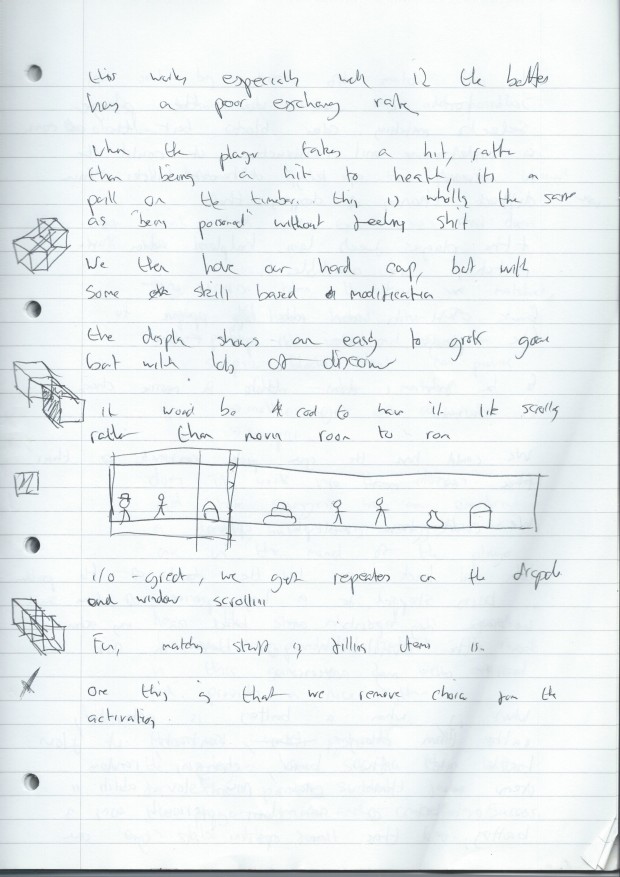 this works especially well if the battler
has a poor exchang rate
when the player takes a hit, rathe
than being a hit to health, its a
pull on the timber. this is wholly the same
as "being poisoned" without feeling shit
We then have our hard cap, but with
some skill based modification
the display shows an easy to grok game
but with lots of discover
it would be cool to have it like scrolly
rather than movin room to room
i/o - great, we get repeates on the
and window scrollin
Fun, matchy stuff is filling items in
One thing is that we remove choice from the
activation